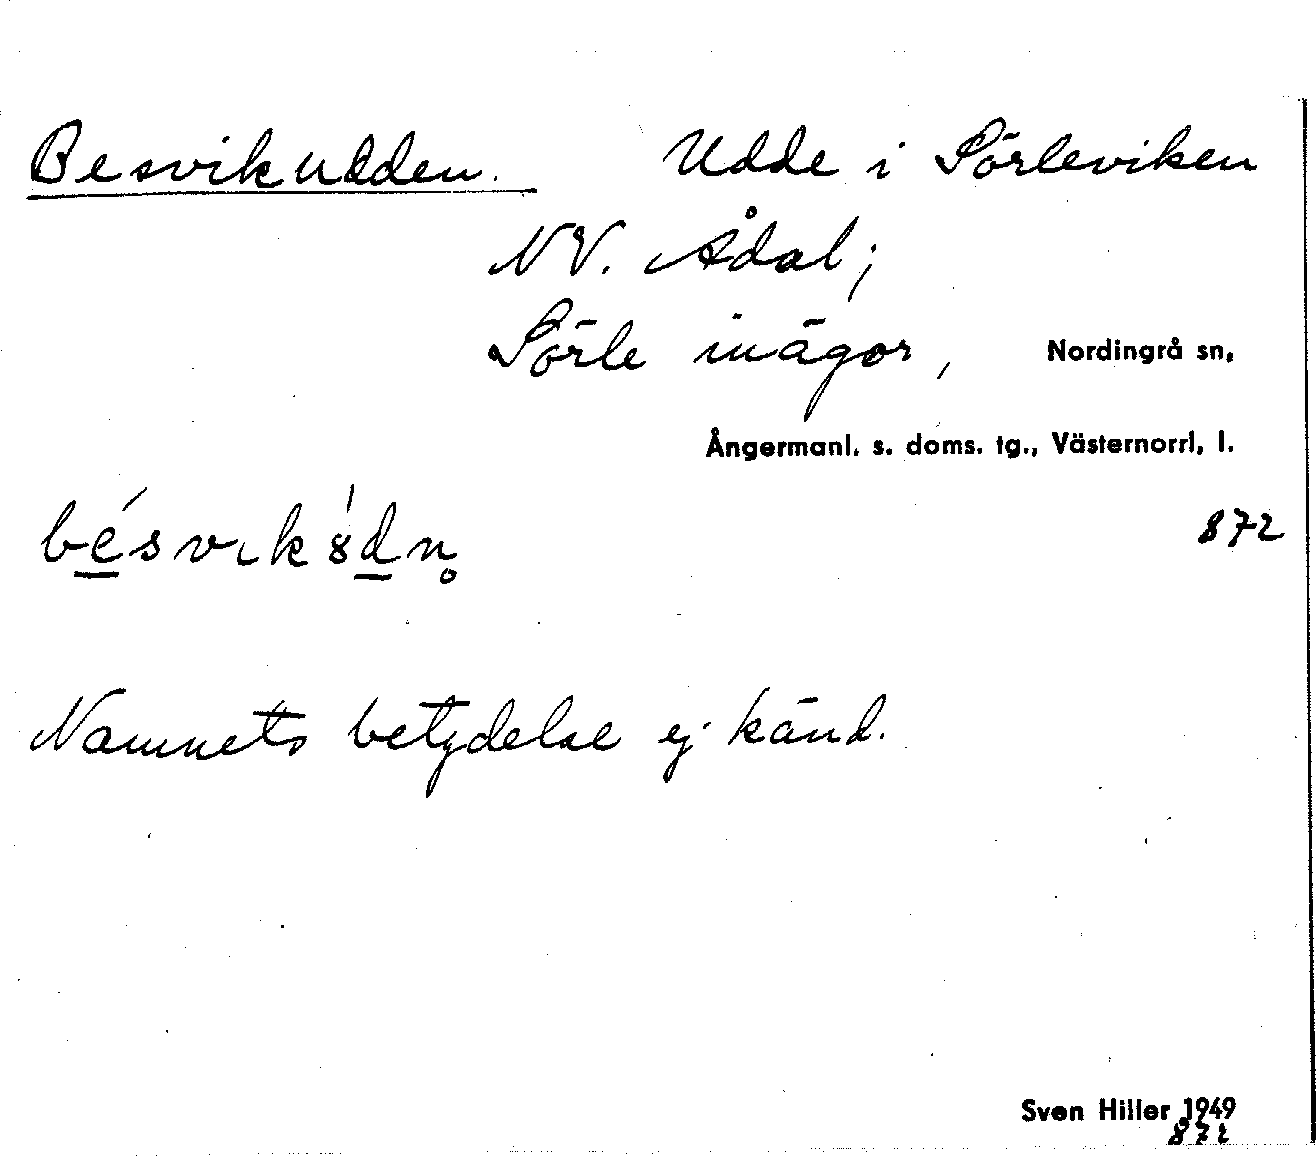 Besvikudden. Udde i Sörleviken
NV. Ådal;
Sörle inägor, Nordingrå sn,
Ångermanl. s. doms. tg., Västernorrl. l.
872
bésvɩkȣ́dn̥
Namnets betydelse ej känd.
Sven Hiller 1949
872